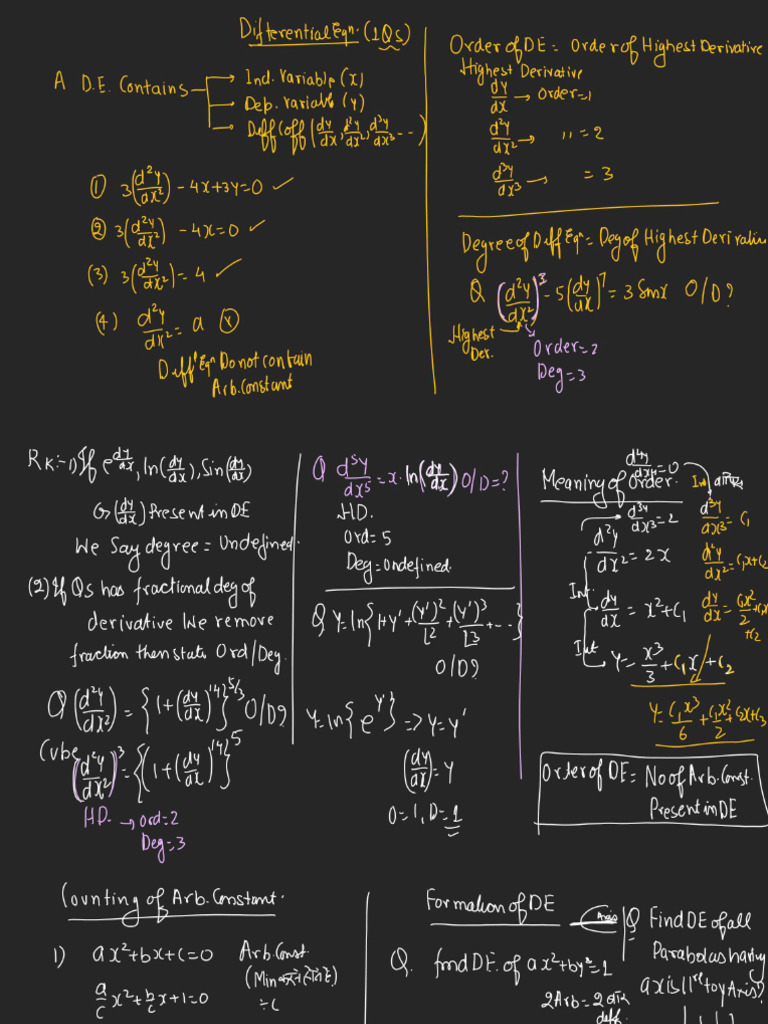 Differential Eqn. (1Qs)
A D.E. Contains
Ind. Variable (x)
Dep. Variable (y)
Diff Coff (dy/dx, d²y/dx², d³y/dx³ ...)
① 3(d²y/dx²) - 4x + 3y = 0 ✓
② 3(d²y/dx²) - 4x = 0 ✓
(3) 3(d²y/dx²) = 4 ✓
(4) d²y/dx² = a ⓧ
Diff Eqn Do not contain
Arb. Constant
Order of DE = Order of Highest Derivative
Highest Derivative
dy/dx → Order = 1
d²y/dx² → " = 2
d³y/dx³ → = 3
Degree of Diff Eqn = Deg of Highest Derivative
Q (d²y/dx²)³ - 5(dy/dx)⁷ = 3 Sinx O/D?
Highest
Der.
Order = 2
Deg = 3
RK:- 1) If e^(dy/dx), ln(dy/dx), Sin(dy/dx)
(dy/dx) Present in DE
We Say degree = Undefined.
(2) If Qs has fractional deg of
derivative We remove
fraction then state Ord/Deg.
Q (d²y/dx²) = {1 + (dy/dx)¹⁴}^(5/3) O/D?
Cube
(d²y/dx²)³ = {(1 + (dy/dx)¹⁴}⁵
HD. → Ord = 2
Deg = 3
Q d⁵y/dx⁵ = x · ln(dy/dx) O/D = ?
HD.
Ord = 5
Deg = Undefined.
Q Y = ln{1 + y' + (y')²/⌊2 + (y')³/⌊3 + ...}
O/D?
Y = ln{e^(y')} => Y = Y'
(dy/dx) = Y
O = 1, D = 1
Meaning of Order.
d⁴y/dx⁴ = 0
d³y/dx³ = 2
d²y/dx² = 2x
Int.
dy/dx = x² + C₁
Int
Y = x³/3 + C₁x + C₂
Int
d³y/dx³ = C₁
d²y/dx² = C₁x + C₂
dy/dx = C₁x²/2 + C₂x
+ C₃
Y = C₁x³/6 + C₁x²/2 + C₂x + C₃
Order of DE = No of Arb. Const.
Present in DE
Counting of Arb. Constant.
1) ax² + bx + c = 0
a/c x² + b/c x + 1 = 0
Arb. Const.
÷ C
Formation of DE
Q. find DE. of ax² + by² = 1
2 Arb = 2
diff.
Axis
Q Find DE of all
Parabolas having
axis ||rel to y Axis?